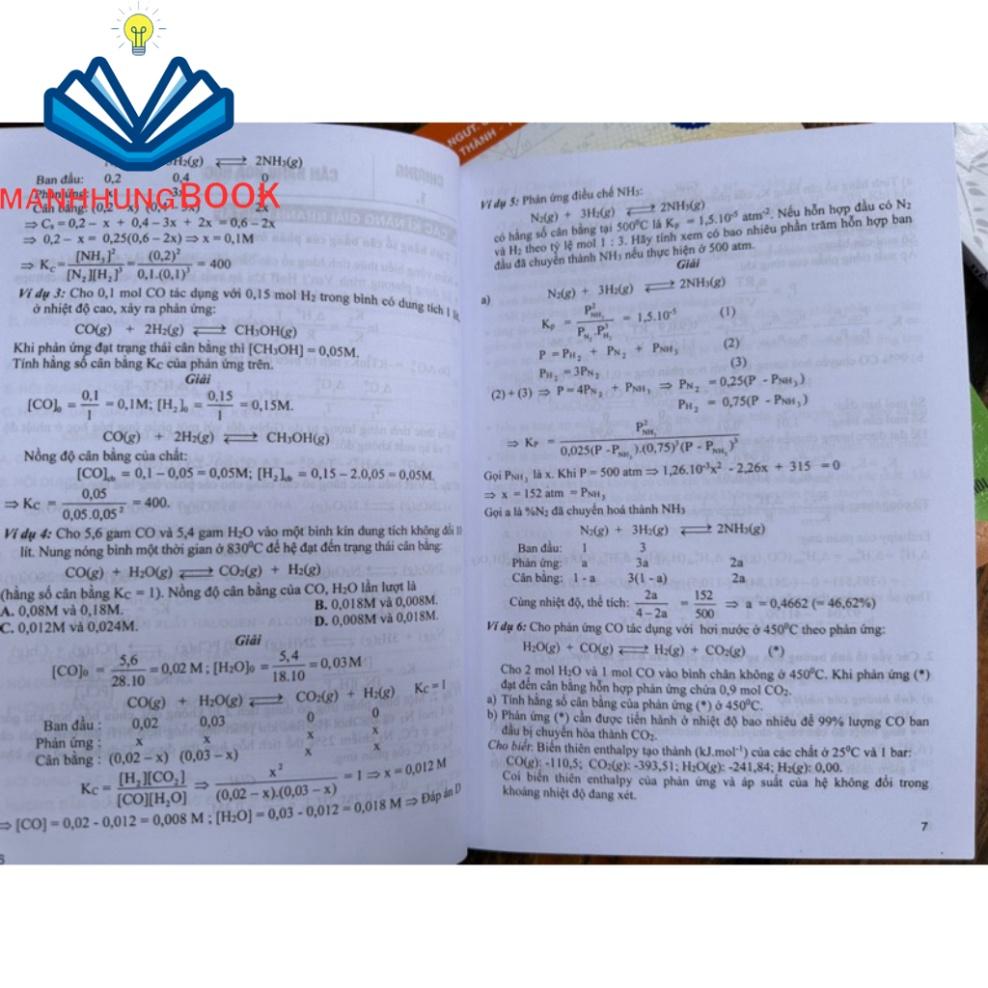 MANHHUNGBOOK
NGƯT.
THÀNH -
H₂(g) ⇌ 2NH₃(g)
Ban đầu: 0,2 0,4 0
Cân bằng: (0,2 - x) (0,4 - 3x) 2x
⇒ Cₛ = 0,2 – x + 0,4 – 3x + 2x = 0,6 – 2x
⇒ 0,2 – x = 0,25(0,6 – 2x) ⇒ x = 0,1M
⇒ K_C = [NH₃]²/[N₂][H₂]³ = (0,2)²/0,1.(0,1)³ = 400
Ví dụ 3: Cho 0,1 mol CO tác dụng với 0,15 mol H₂ trong bình có dung tích 1 lít
ở nhiệt độ cao, xảy ra phản ứng:
CO(g) + 2H₂(g) ⇌ CH₃OH(g)
Khi phản ứng đạt trạng thái cân bằng thì [CH₃OH] = 0,05M.
Tính hằng số cân bằng Kc của phản ứng trên.
Giải
[CO]₀ = 0,1/1 = 0,1M; [H₂]₀ = 0,15/1 = 0,15M.
CO(g) + 2H₂(g) ⇌ CH₃OH(g)
Nồng độ cân bằng của chất:
[CO]cb = 0,1 – 0,05 = 0,05M; [H₂]cb = 0,15 – 2.0,05 = 0,05M.
⇒ Kc = 0,05/0,05.0,05² = 400.
Ví dụ 4: Cho 5,6 gam CO và 5,4 gam H₂O vào một bình kín dung tích không đổi 10
lít. Nung nóng bình một thời gian ở 830⁰C để hệ đạt đến trạng thái cân bằng:
CO(g) + H₂O(g) ⇌ CO₂(g) + H₂(g)
(hằng số cân bằng Kc = 1). Nồng độ cân bằng của CO, H₂O lần lượt là
A. 0,08M và 0,18M. B. 0,018M và 0,008M.
C. 0,012M và 0,024M. D. 0,008M và 0,018M.
Giải
[CO]₀ = 5,6/28.10 = 0,02 M ; [H₂O]₀ = 5,4/18.10 = 0,03M
CO(g) + H₂O(g) ⇌ CO₂(g) + H₂(g) Kc = 1
Ban đầu : 0,02 0,03 0 0
Phản ứng : x x x x
Cân bằng : (0,02 – x) (0,03 – x) x x
Kc = [H₂][CO₂]/[CO][H₂O] ⇒ x²/(0,02 – x).(0,03 – x) = 1 ⇒ x = 0,012 M
⇒ [CO] = 0,02 - 0,012 = 0,008 M ; [H₂O] = 0,03 - 0,012 = 0,018 M ⇒ Đáp án D
Ví dụ 5: Phản ứng điều chế NH₃:
N₂(g) + 3H₂(g) ⇌ 2NH₃(g)
có hằng số cân bằng tại 500⁰C là Kₚ = 1,5.10⁻⁵ atm⁻². Nếu hỗn hợp đầu có N₂
và H₂ theo tỷ lệ mol 1 : 3. Hãy tính xem có bao nhiêu phần trăm hỗn hợp ban
đầu đã chuyển thành NH₃ nếu thực hiện ở 500 atm.
Giải
a) N₂(g) + 3H₂(g) ⇌ 2NH₃(g)
Kₚ = P²NH₃/PN₂.P³H₂ = 1,5.10⁻⁵ (1)
P = PH₂ + PN₂ + PNH₃ (2)
PH₂ = 3PN₂ (3)
(2) + (3) ⇒ P = 4PN₂ + PNH₃ ⇒ PN₂ = 0,25(P - PNH₃)
PH₂ = 0,75(P - PNH₃)
⇒ Kₚ = P²NH₃/0,025(P - PNH₃).(0,75)³(P - PNH₃)³
Gọi PNH₃ là x. Khi P = 500 atm ⇒ 1,26.10⁻³x² - 2,26x + 315 = 0
⇒ x = 152 atm = PNH₃
Gọi a là %N₂ đã chuyển hoá thành NH₃
N₂(g) + 3H₂(g) ⇌ 2NH₃(g)
Ban đầu: 1 3
Phản ứng: a 3a 2a
Cân bằng: 1 - a 3(1 - a) 2a
Cùng nhiệt độ, thể tích: 2a/4 – 2a = 152/500 ⇒ a = 0,4662 (= 46,62%)
Ví dụ 6: Cho phản ứng CO tác dụng với hơi nước ở 450⁰C theo phản ứng:
H₂O(g) + CO(g) ⇌ H₂(g) + CO₂(g) (*)
Cho 2 mol H₂O và 1 mol CO vào bình chân không ở 450⁰C. Khi phản ứng (*)
đạt đến cân bằng hỗn hợp phản ứng chứa 0,9 mol CO₂.
a) Tính hằng số cân bằng của phản ứng (*) ở 450⁰C.
b) Phản ứng (*) cần được tiến hành ở nhiệt độ bao nhiêu để 99% lượng CO ban
đầu bị chuyển hóa thành CO₂.
Cho biết: Biến thiên enthalpy tạo thành (kJ.mol⁻¹) của các chất ở 25⁰C và 1 bar:
CO(g): -110,5; CO₂(g): -393,51; H₂O(g): -241,84; H₂(g): 0,00.
Coi biến thiên enthalpy của phản ứng và áp suất của hệ không đổi trong
khoảng nhiệt độ đang xét.
7